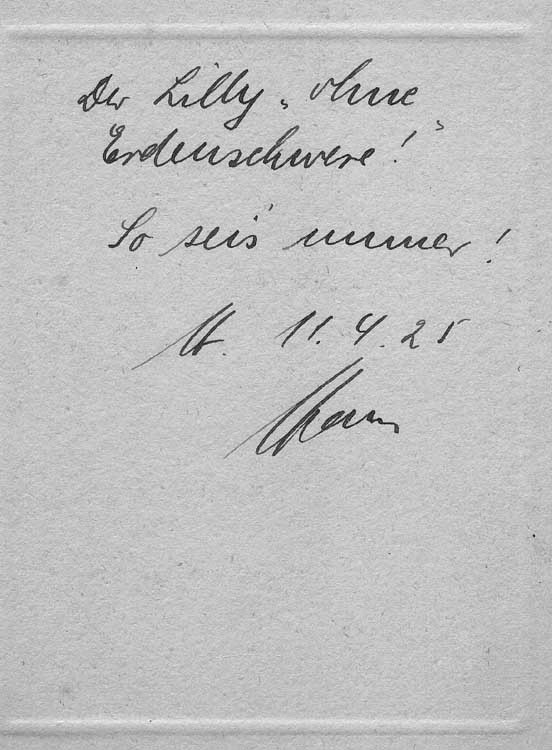 Der Lilly „ohne
Erdenschwere!“
So sei's immer!
11.4.25